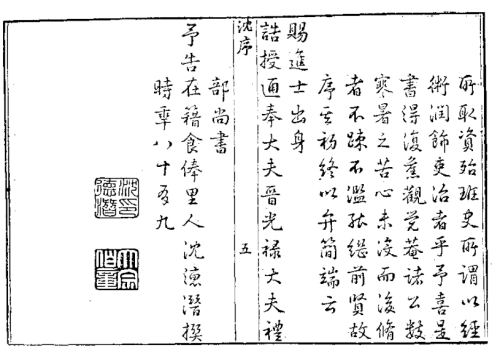 所取資殆班史所謂以經
術潤飾吏治者乎予喜是
書得復舊觀覺菴諸公數
寒暑之苦心未沒而後脩
者不踈不濫能繼前賢故
序其初終以弁簡端云
賜進士出身
誥授通奉大夫晉光祿大夫禮
沈序 五
部尚書
予告在籍食俸里人沈德潛撰
時年八十有九
沈印德潛